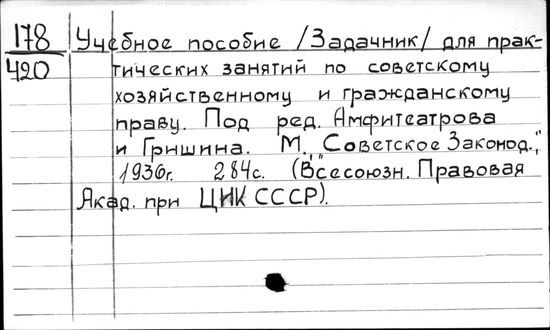 178 Учебное пособие /Задачник/ для прак-
420 тических занятий по советскому
хозяйственному и гражданскому
праву. Под ред. Амфитеатрова
и Гришина. М., "Советское Законод.",
1936г. 284с. (Всесоюзн. Правовая
Акад. при ЦИК СССР).